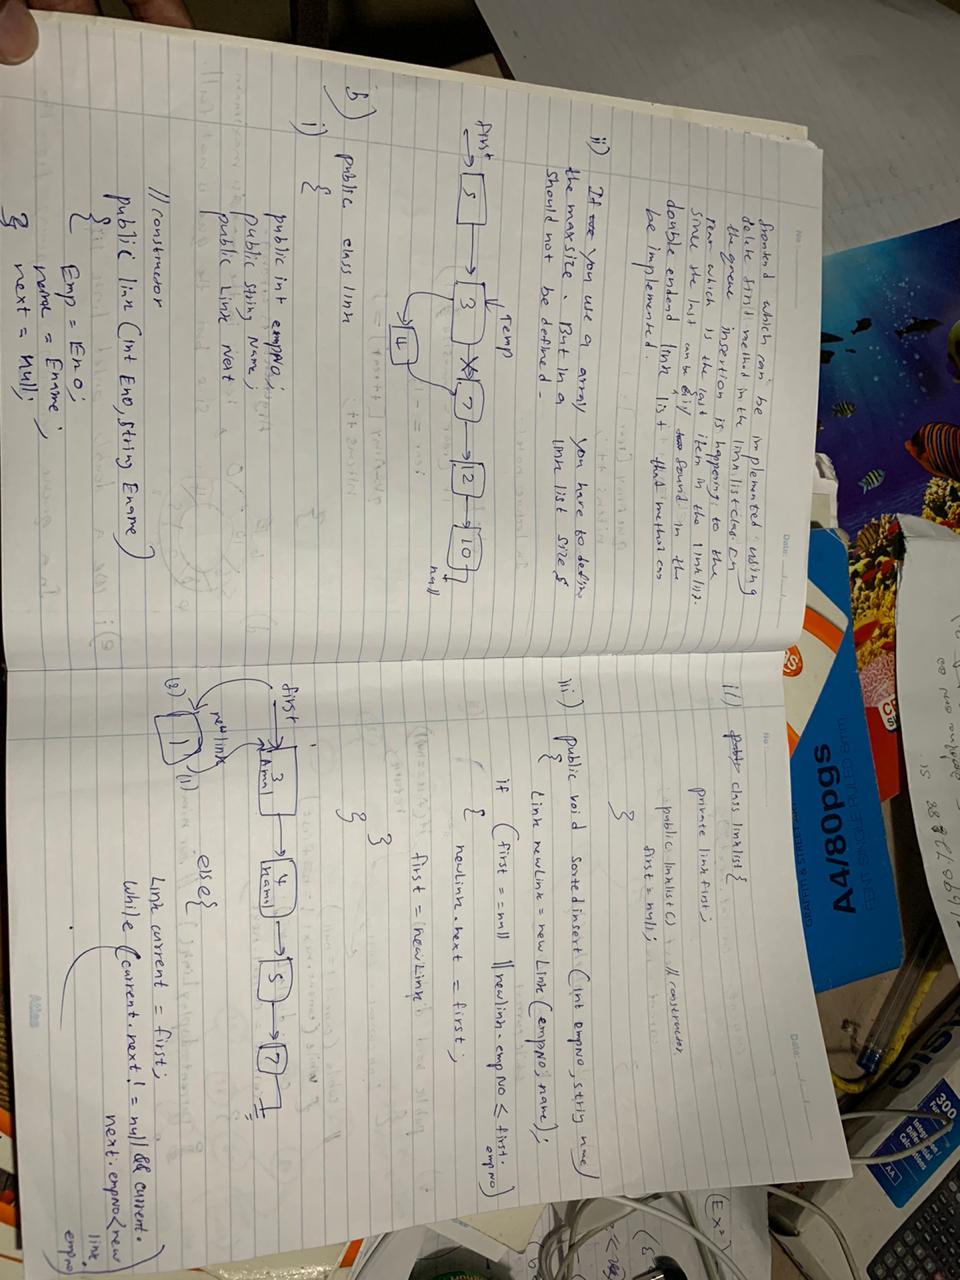 300
Integration/
Differential
Calculations
AA
A4/80pgs
No :
Date:
frontend which can be implemented using
delete first method in the link list class. In
the queue insertion is happening to the
rear which is the last item in the linklist.
since the last can be easily found in the
double endend link list that method can
be implemented.
ii) If you use a array you have to define
the maxsize. But in a link list size
should not be defined.
Temp
first
5 3 7 12 10
null
4
b)
i) public class link
{
public int empNO;
public string Name;
public Link Next
// constructor
public link (int Eno, string Ename)
{
Emp = Eno;
name = Ename;
next = null;
}
No :
Date:
ii) class linklist {
private link first;
public linklist() // constructor
first = null;
}
iii) public void sortedinsert (int empNO, string name)
{
Link newLink = new Link (empNO, name);
if (first == null || newlink.empNO ≤ first.
empNO)
{
newLink.next = first;
first = newLink
}
}
first
3 Amal 4 Kamal 5 7
new link
(2) 1 (1)
else {
Link current = first;
while (current.next != null && current.
next.empNO < new
link.
empno)
Atlas